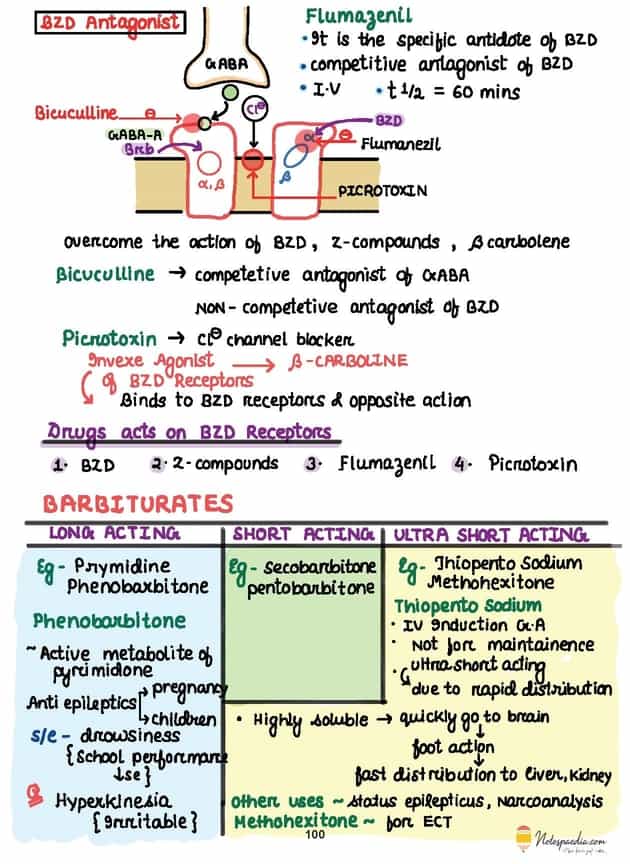 BZD Antagonist
Flumazenil
• It is the specific antidote of BZD
• competitive antagonist of BZD
• I.V • t 1/2 = 60 mins
GABA
Cl⊖
Bicuculline ⊖
BZD
GABA-A
Barb
α
⊖
Flumanezil
β
α, β
PICROTOXIN
overcome the action of BZD, Z-compounds, β carbolene
Bicuculline → competetive antagonist of GABA
NON-competetive antagonist of BZD
Picrotoxin → Cl⊖ channel blocker
Invexe Agonist → β-CARBOLINE
of BZD Receptors
Binds to BZD receptors & opposite action
Drugs acts on BZD Receptors
1. BZD 2. Z-compounds 3. Flumazenil 4. Picrotoxin
BARBITURATES
LONG ACTING
Eg - Prymidine
Phenobarbitone
Phenobarbitone
~ Active metabolite of
pyrimidone
Anti epileptics → pregnancy
→ children
s/e - drowsiness
{School performance
↓se}
Hyperkinesia
{Irritable}
SHORT ACTING
Eg - Secobarbitone
pentobarbitone
ULTRA SHORT ACTING
Eg - Thiopento Sodium
Methohexitone
Thiopento Sodium
• IV Induction G.A
• Not for maintainence
• ultra short acting
due to rapid distribution
• Highly soluble → quickly go to brain
↓
foot action
↓
fast distribution to liver, Kidney
Other uses ~ Status epilepticus, Narcoanalysis
Methohexitone ~ for ECT
100
Notespaedia.com